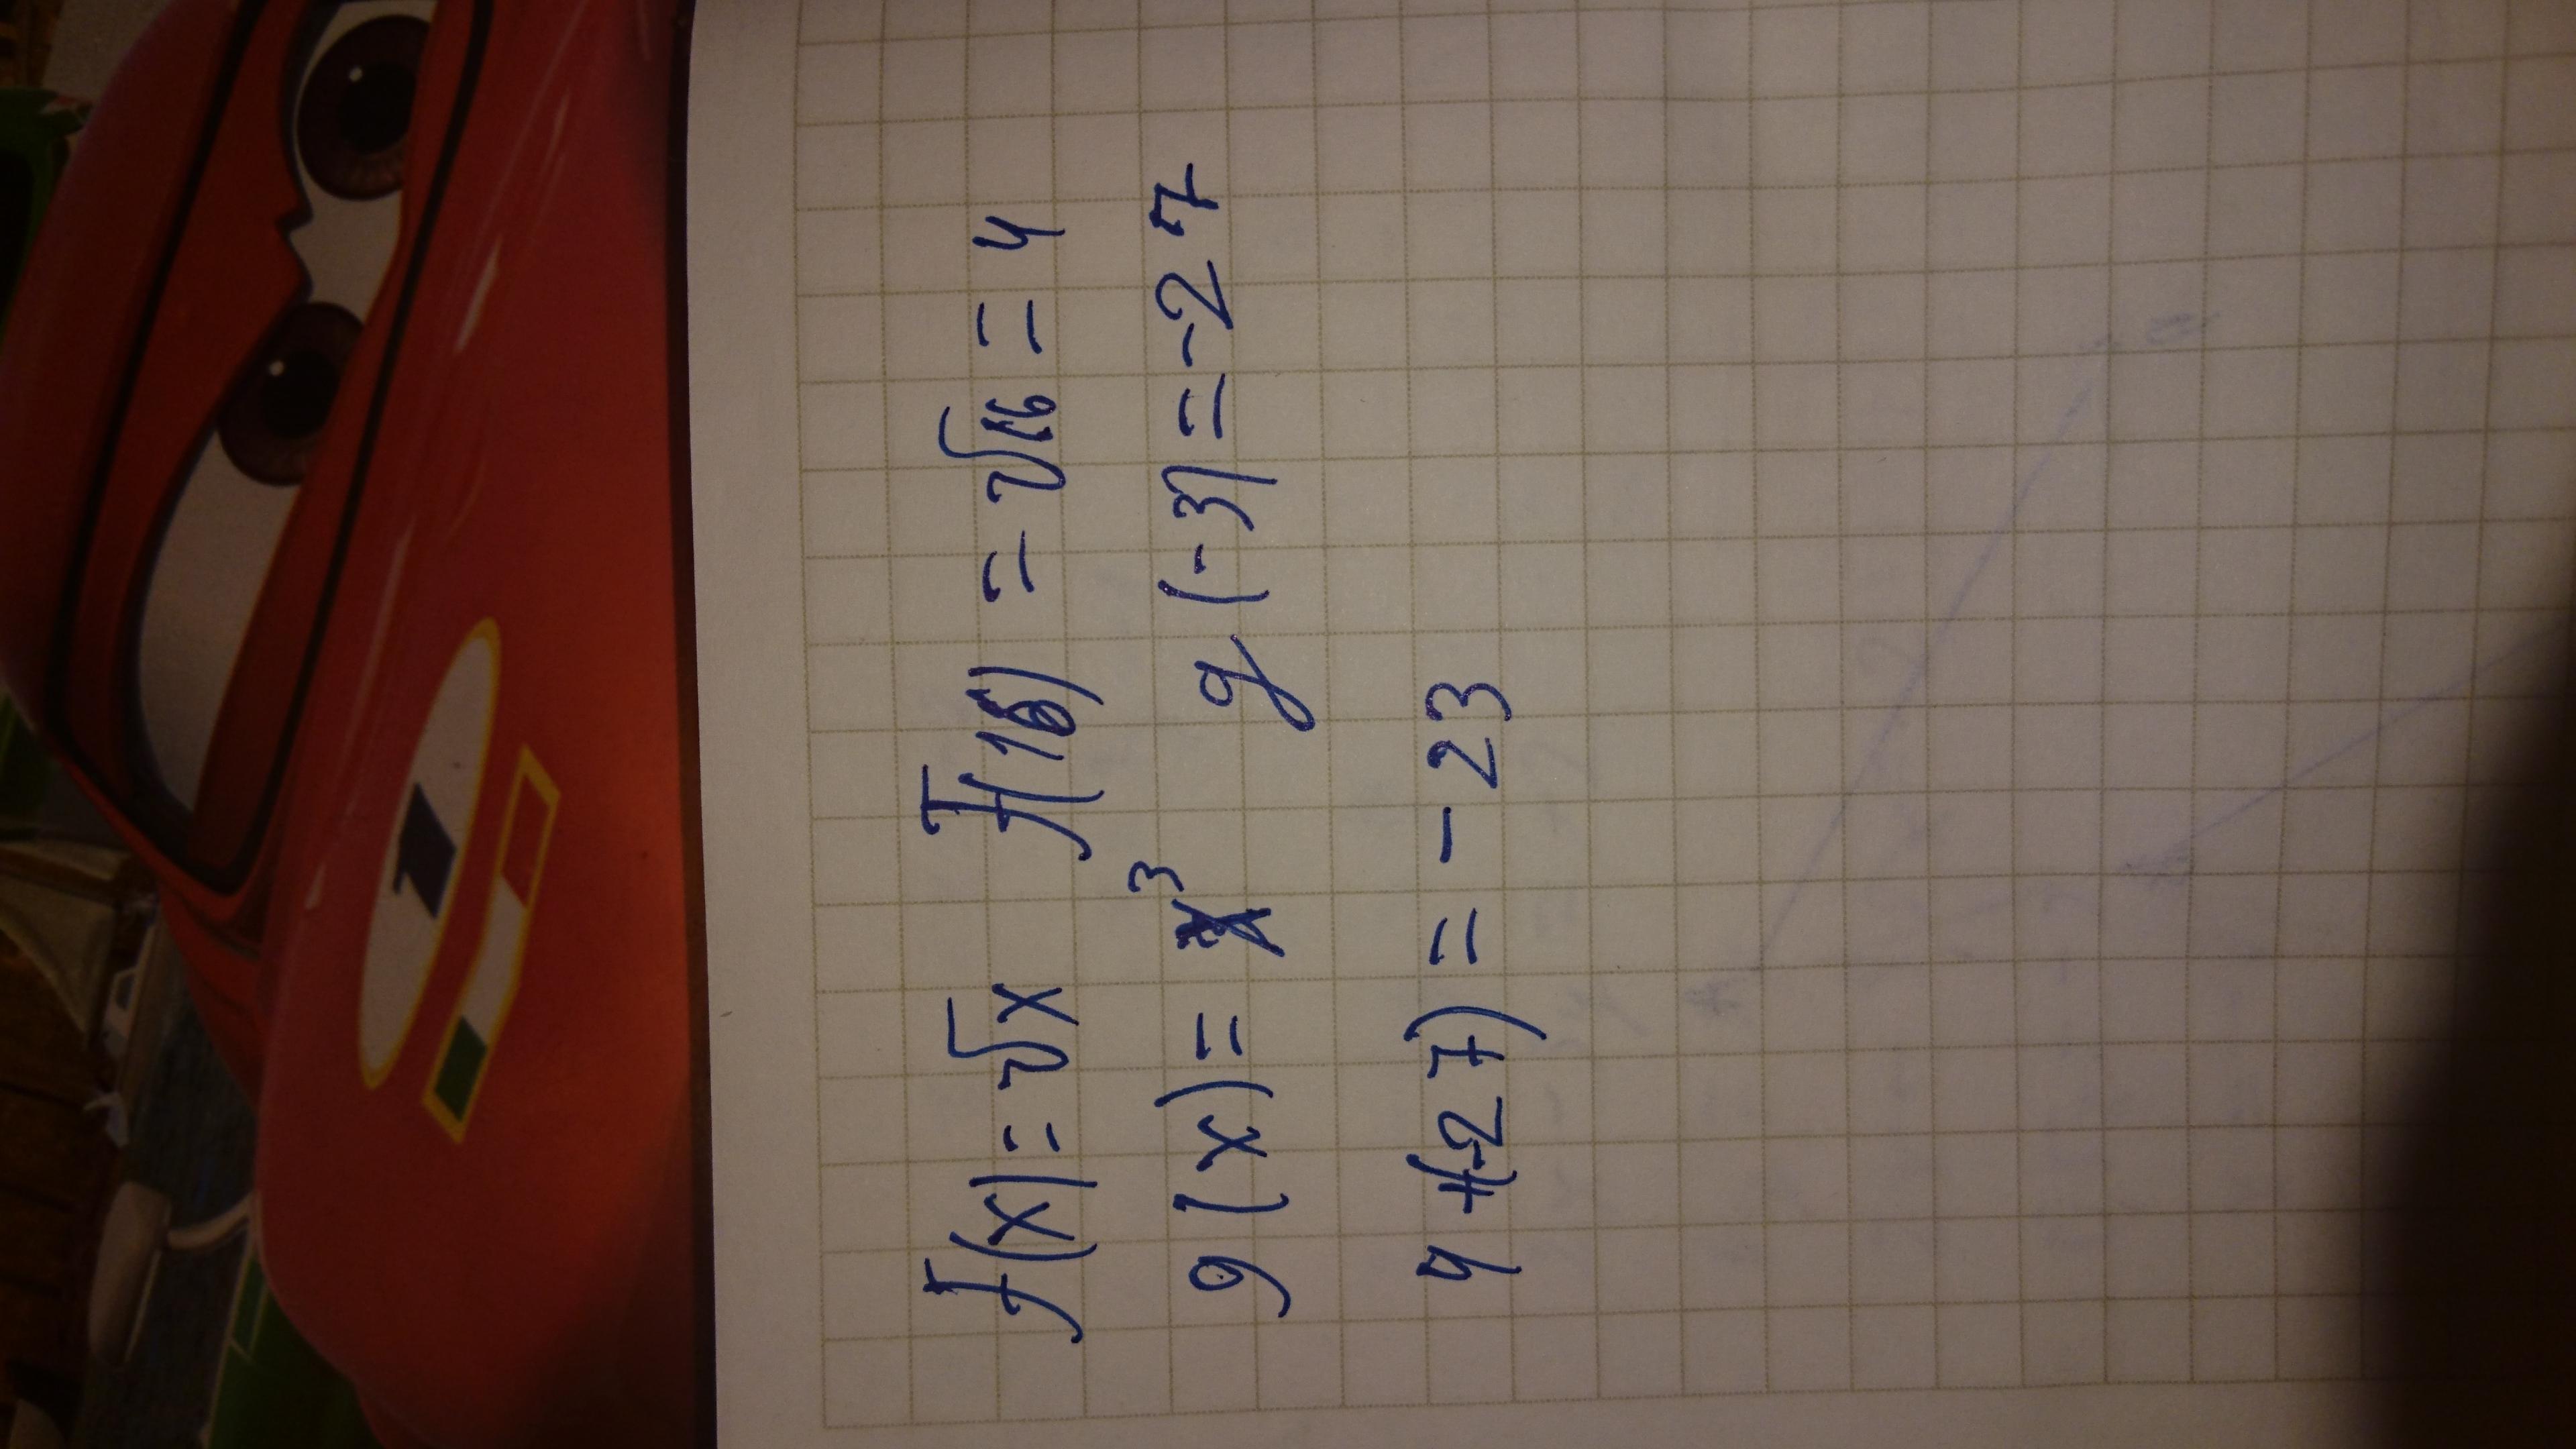 f(x)=√x f(16) = √16 = 4
g(x)= x³ g(-3)=-27
4+(-27)= -23
1